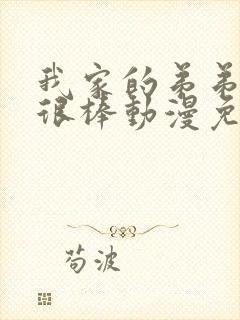 我家的弟弟
很棒動漫免
苟波